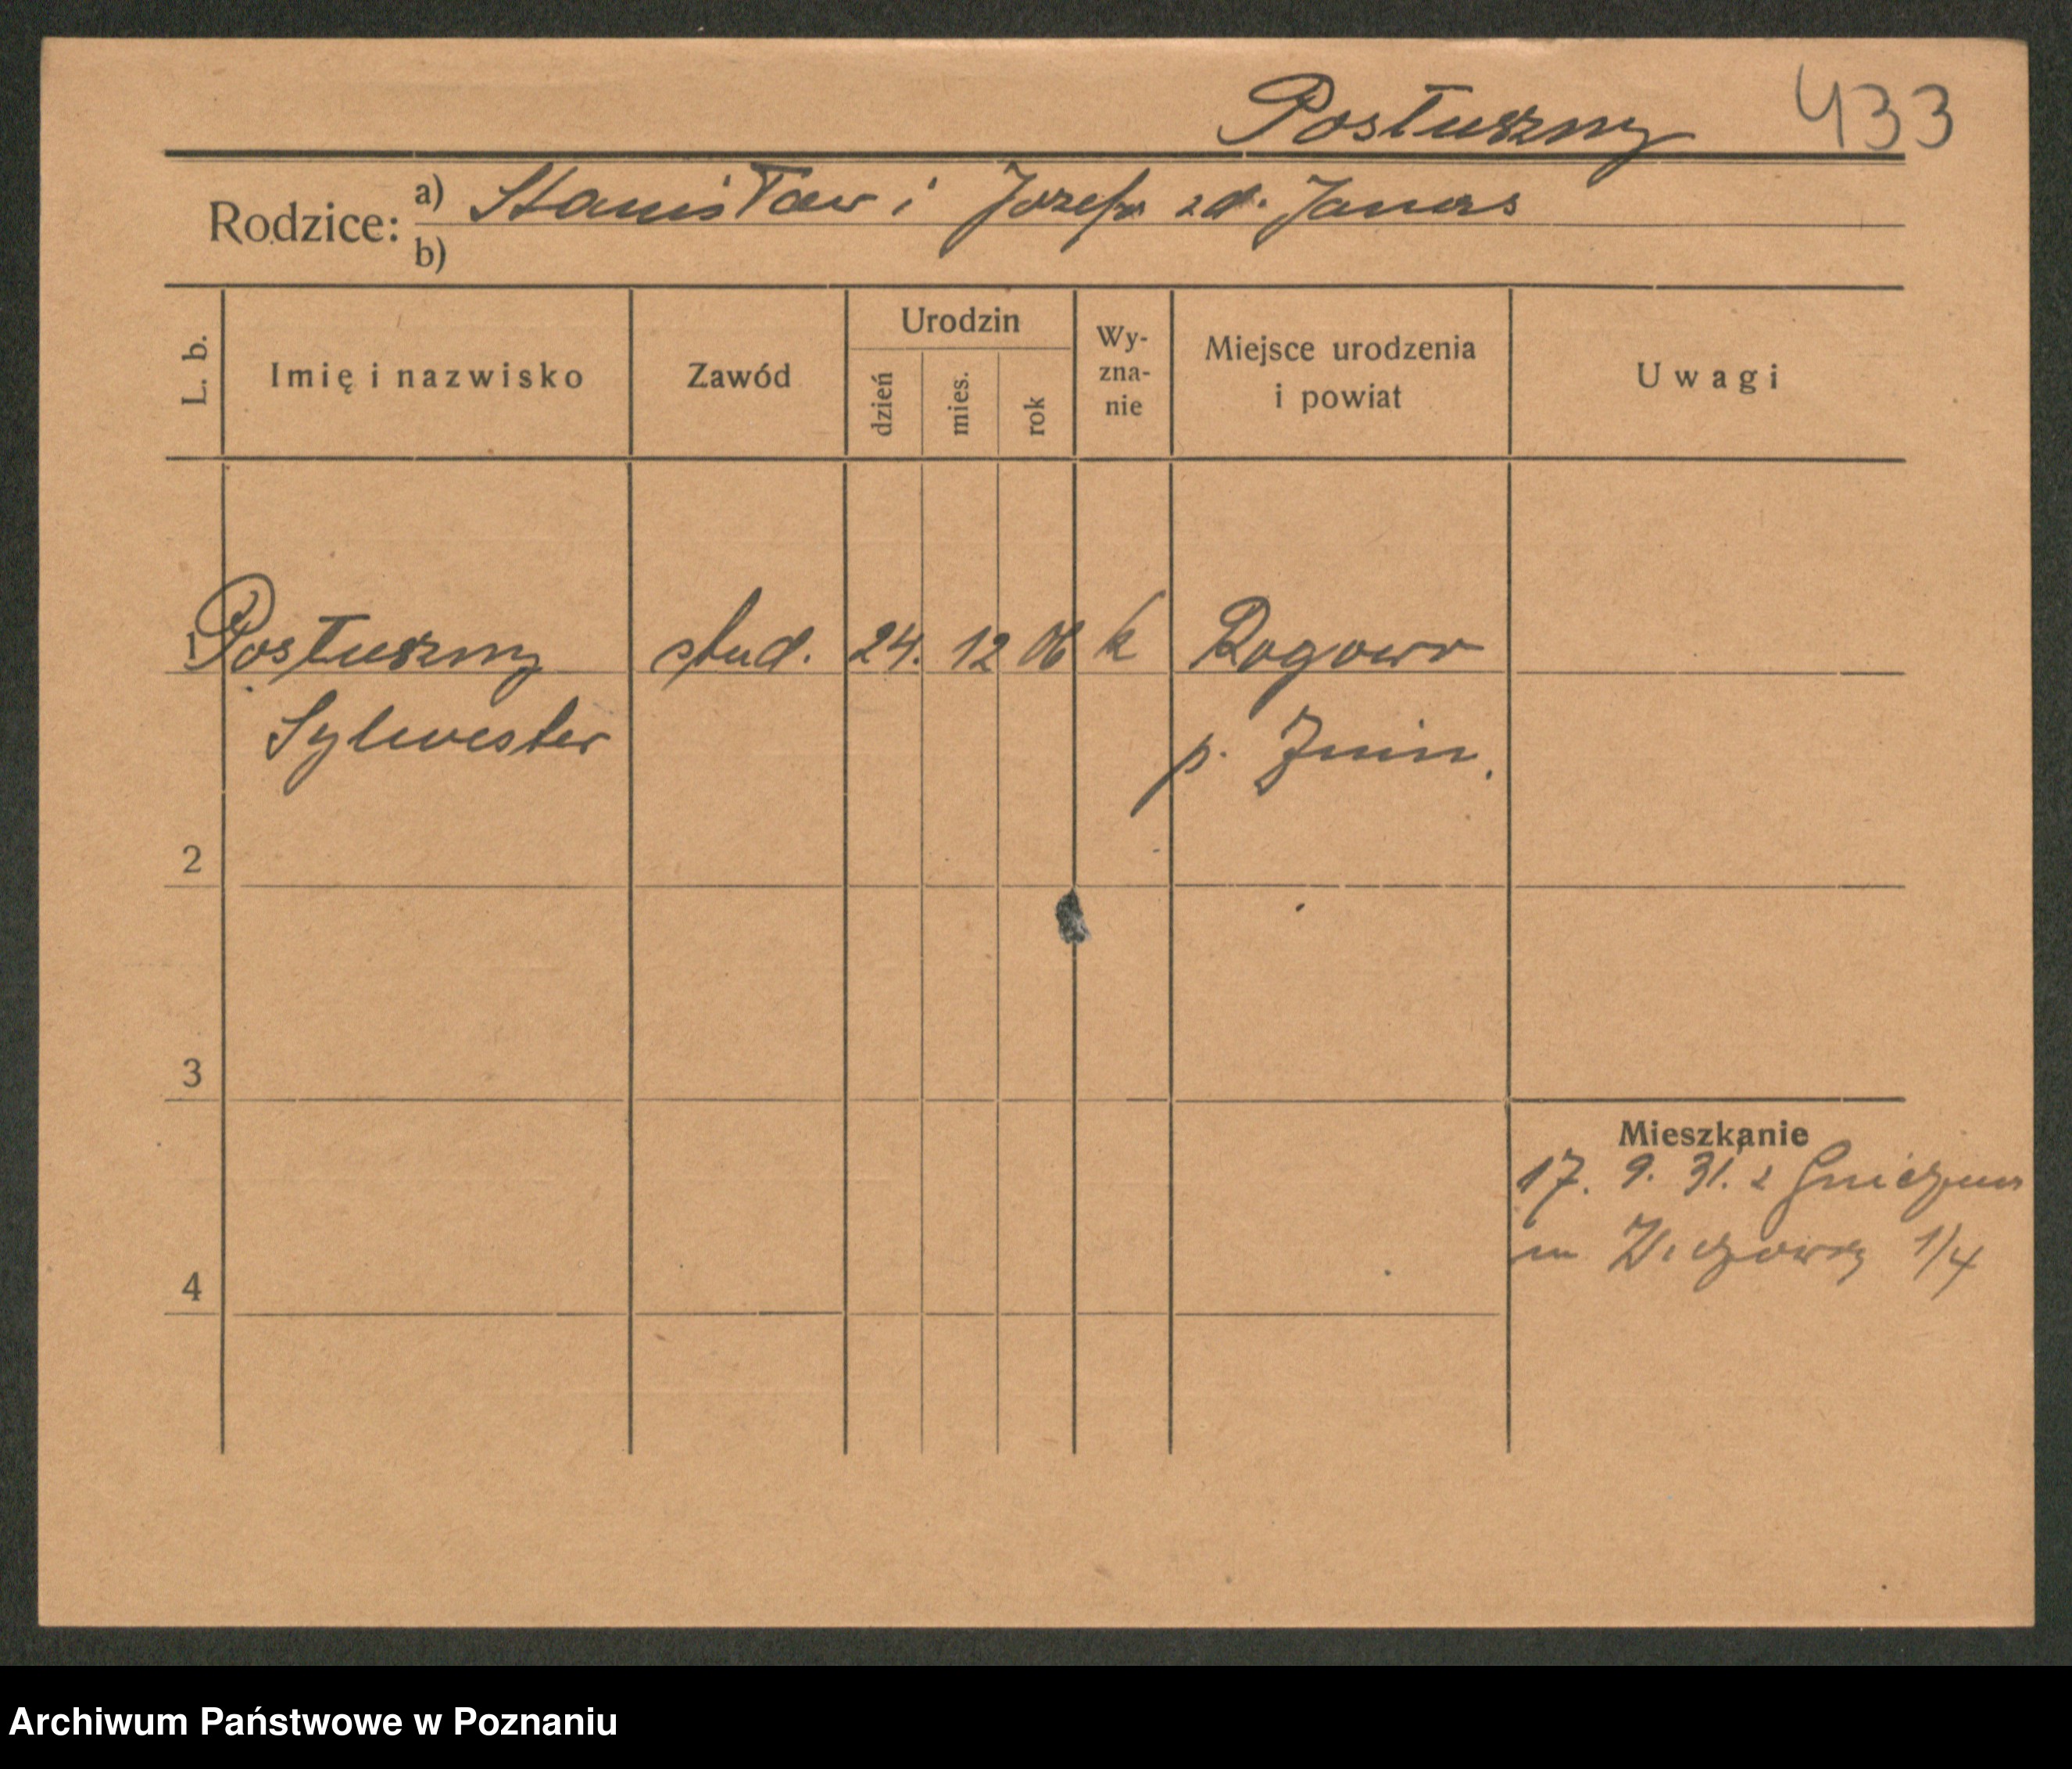 Posłuszny 433
Rodzice: a) Stanisław i Józefa zd. Janas
b)
L. b. Imię i nazwisko Zawód Urodzin dzień mies. rok Wy-zna-nie Miejsce urodzenia i powiat Uwagi
1 Posłuszny stud. 24. 12 06 k Rogowo
Sylwester p. Żnin.
2
3
Mieszkanie
17. 9. 31. z Gniezna
4
1/4
Archiwum Państwowe w Poznaniu